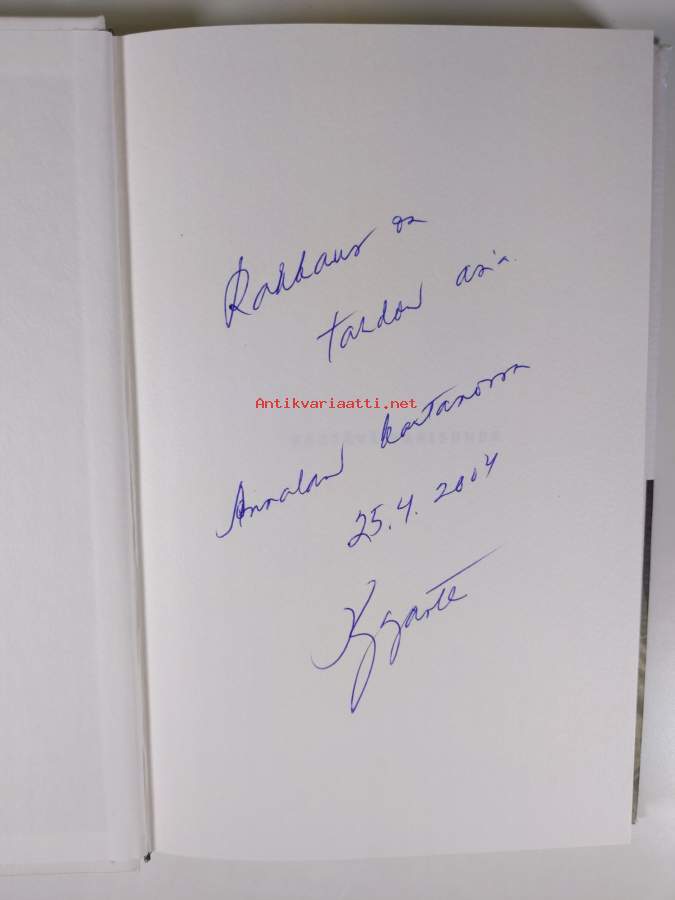 Rakkaus on
tahdon asia.
Antikvariaatti.net
Annalan kartanossa
25.4.2004